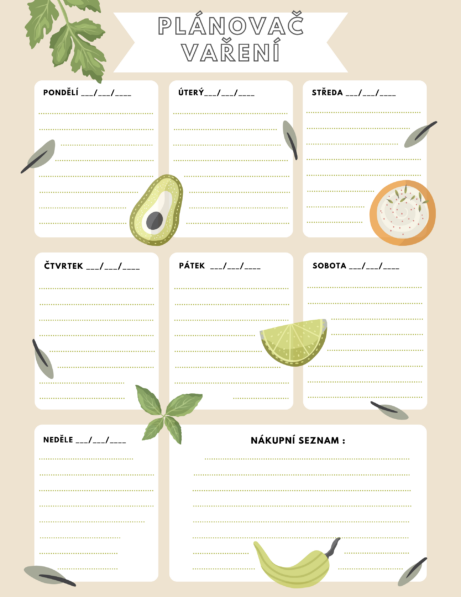 PLÁNOVAČ
VAŘENÍ
PONDĚLÍ ___/___/____
ÚTERÝ___/___/____
STŘEDA ___/___/____
ČTVRTEK ___/___/____
PÁTEK ___/___/____
SOBOTA ___/___/____
NEDĚLE ___/___/____
NÁKUPNÍ SEZNAM :